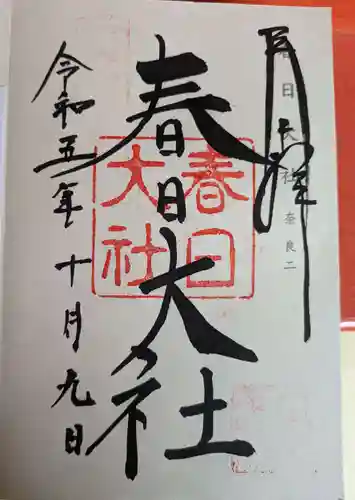 奉拝
春日大社 奈良二
春日大社
春日
大社
令和五年十月九日